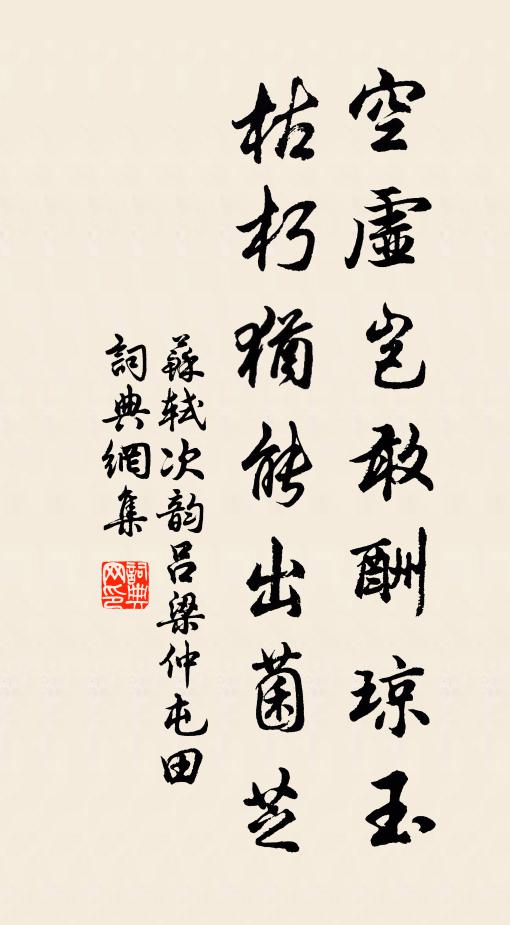 空虛豈敢酬琼玉
枯朽猶能出菌芝
蘇軾次韵呂梁仲屯田
詞典網集
詞典
网印